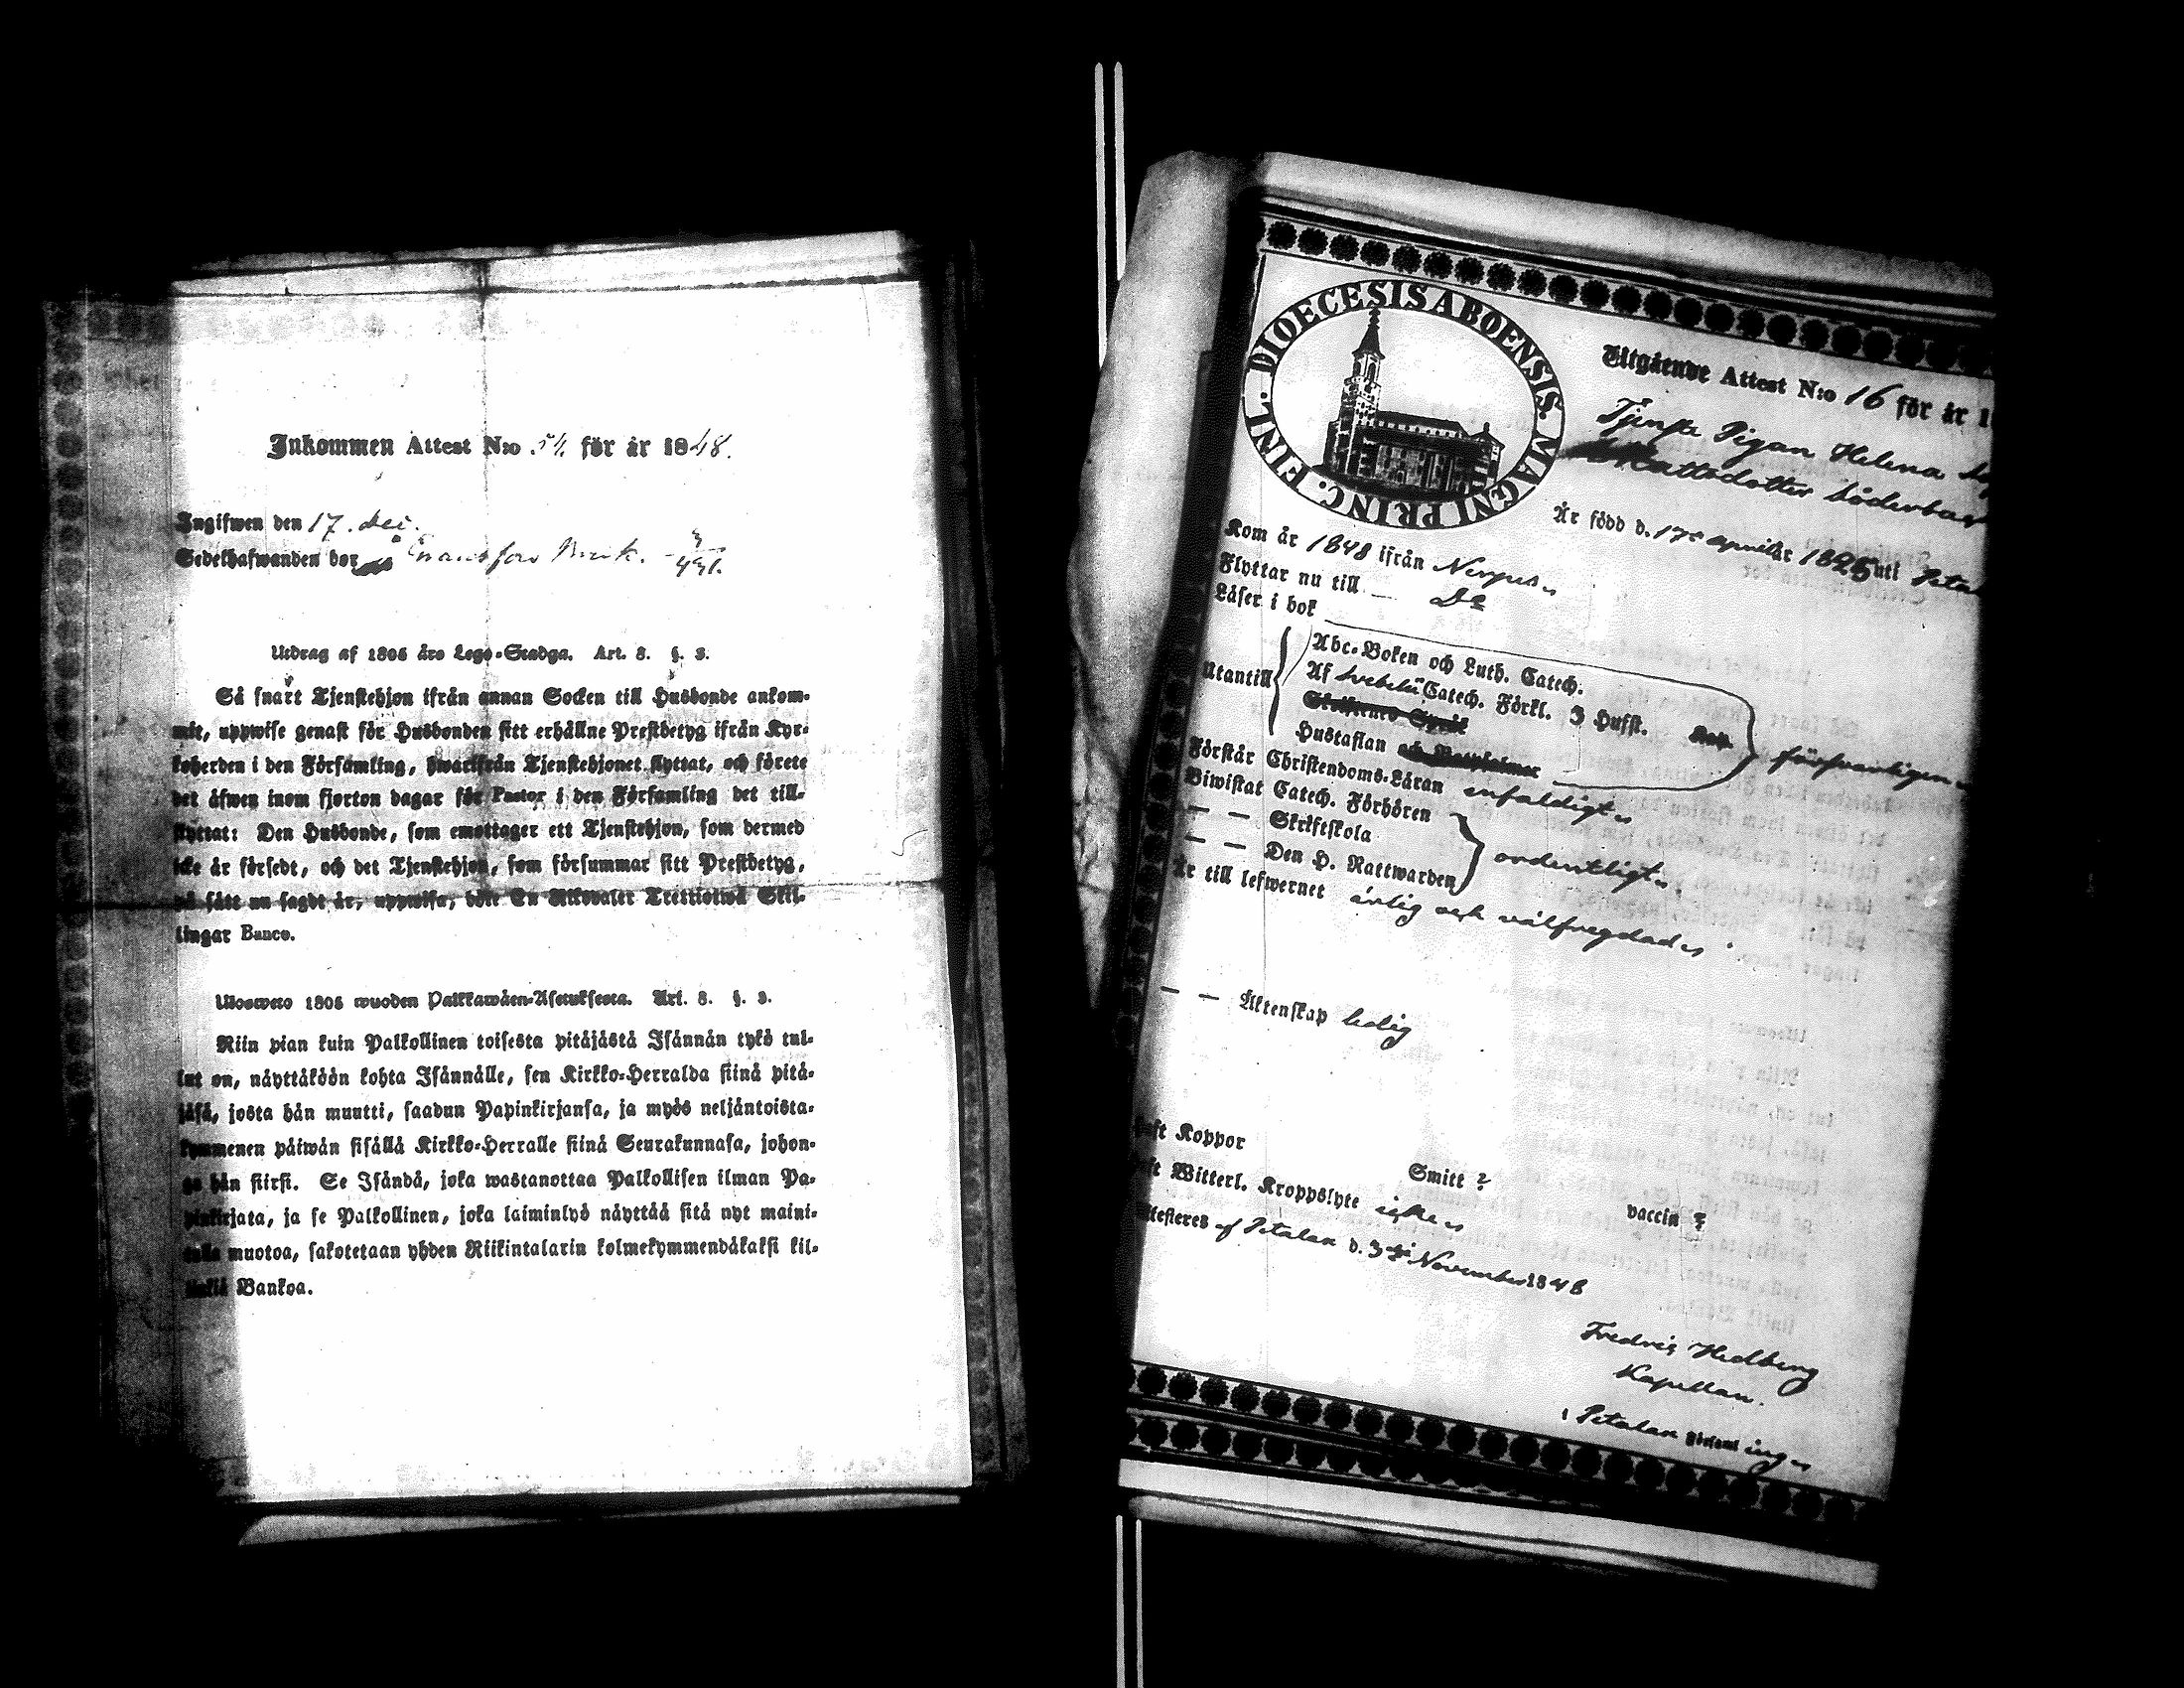 Inkommen Attest N:o 54. för år 1848.
Ingifwen den 17. dec.
Sedelhafwanden bor
Utdrag af 1805 års Lego-Stadga. Art. 8. §. 3.
Så snart Tjenstehjon ifrån annan Socken till Husbonde ankom-
mit, uppwise genast för Husbonden sitt erhållne Prestbetyg ifrån Kyr-
koherden i den Församling, hwarifrån Tjenstehjonet flyttat, och förete
det äfwen inom fjorton dagar för Pastor i den Församling det till-
flyttat: Den Husbonde, som emottager ett Tjenstehjon, som dermed
icke är försedt, och det Tjenstehjon, som försummar sitt Prestbetyg,
på sätt nu sagdt är, uppwisa, böte En Riksdaler Trettiotwå Skil-
lingar Banco.
Ulosweto 1805 wuoden Palkkawäen-Asetuksesta. Art. 8. §. 3.
Niin pian kuin Palkollinen toisesta pitäjästä Isännän tykö tul-
lut on, näyttäköön kohta Isännälle, sen Kirkko-Herralda siinä pitä-
jäsä, josta hän muutti, saadun Papinkirjansa, ja myös neljäntoista-
kymmenen päiwän sisällä Kirkko-Herralle siinä Seurakunnasa, johon-
ga hän siirsi. Se Isändä, joka wastanottaa Palkollisen ilman Pa-
pinkirjata, ja se Palkollinen, joka laiminlyö näyttää sitä nyt maini-
tulla muotoa, sakotetaan yhden Riikintalarin kolmekymmendäkaksi kil-
linkiä Bankoa.
DIOECESIS ABOENSIS. MAGNI PRINC. FINL.
Utgående Attest N:o 16 för år 1
Tjenste Pigan Helena
Mattsdotter Söderbac
Är född d. 17de April år 1825 uti Peta
Kom år 1848 ifrån Nerpes
Flyttar nu till — Do
Läser i bok
Utantill
Abc-Boken och Luth. Catech.
Af Svebelii Catech. Förkl. 3 Hufst.
Hustaflan
försvarligen
Förstår Christendoms-Läran enfaldigt
Biwistat Catech. Förhören
— — Skriftskola
— — Den H. Nattwarden
ordentligt
Är till lefwernet ärlig och välfregdad
— — Äktenskap ledig
Haft Koppor
Smitt ?
vaccin ?
Haft Witterl. Kroppslyte icke
Attesteres af Petalax d. 3dje November 1848
Fredric Hedberg
Kapellan.
i Petalax Församling